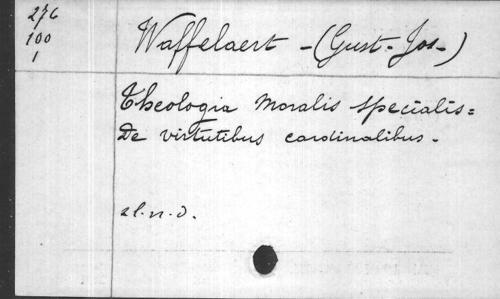 276
100
1
Waffelaert - (Gust - Jos - )
Theologia Moralis specialis =
De virtutibus cardinalibus .
s.l.n.d.